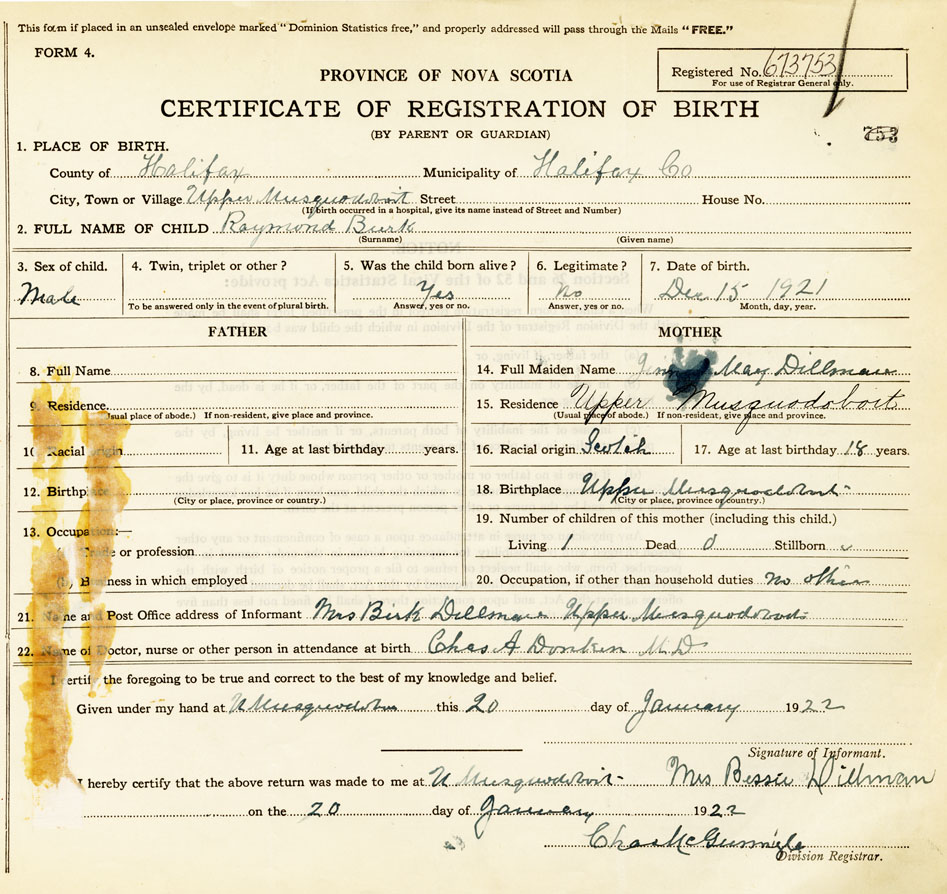 This form if placed in an unsealed envelope marked "Dominion Statistics free," and properly addressed will pass through the Mails "FREE."
FORM 4.
Registered No. 673753
For use of Registrar General only.
PROVINCE OF NOVA SCOTIA
CERTIFICATE OF REGISTRATION OF BIRTH
(BY PARENT OR GUARDIAN)
753
1. PLACE OF BIRTH.
County of Halifax Municipality of Halifax Co
City, Town or Village Upper Musquodoboit Street House No.
(If birth occurred in a hospital, give its name instead of Street and Number)
2. FULL NAME OF CHILD Raymond Burk
(Surname) (Given name)
3. Sex of child. 4. Twin, triplet or other? 5. Was the child born alive? 6. Legitimate? 7. Date of birth.
Male Yes no Dec 15 1921
To be answered only in the event of plural birth. Answer, yes or no. Answer, yes or no. Month, day, year.
FATHER MOTHER
8. Full Name 14. Full Maiden Name May Dillman
9. Residence 15. Residence Upper Musquodoboit
(Usual place of abode.) If non-resident, give place and province. (Usual place of abode.) If non-resident, give place and province.
10. Racial origin 11. Age at last birthday years. 16. Racial origin Scotch 17. Age at last birthday 18 years.
12. Birthplace 18. Birthplace Upper Musquodoboit
(City or place, province or country.) (City or place, province or country.)
13. Occupation:— 19. Number of children of this mother (including this child.)
(a) Trade or profession Living 1 Dead 0 Stillborn
(b) Business in which employed 20. Occupation, if other than household duties no other
21. Name and Post Office address of Informant Mrs Birk Dillman Upper Musquodoboit
22. Name of Doctor, nurse or other person in attendance at birth Chas A Donkin M.D
I certify the foregoing to be true and correct to the best of my knowledge and belief.
Given under my hand at U Musquodoboit this 20 day of January 1922
Signature of Informant.
I hereby certify that the above return was made to me at U Musquodoboit Mrs Bessie Dillman
on the 20 day of January 1922
Chas
Division Registrar.